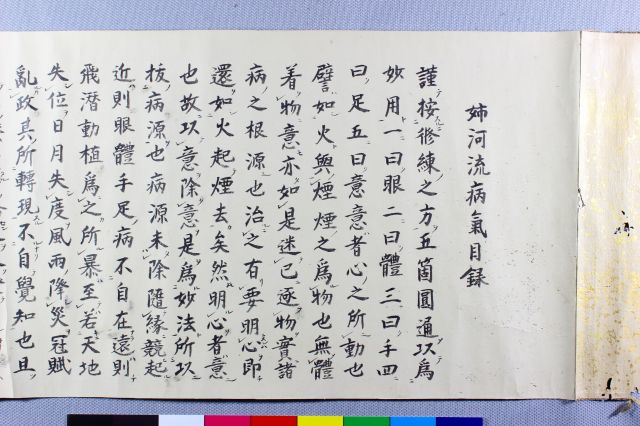 姉河流病氣目録
謹按修練之方五箇圓通以爲
妙用一曰眼二曰體三曰手四
曰足五曰意意者心之所動也
譬如火與煙煙之爲物也無體
着物意亦如是迷已逐物實諸
病之根源也治之有要明心即
還如火起煙去矣然明心者意
也故以意除意是爲妙法所以
拔病源也病源未除隨緣競起
近則眼體手足病不自在遠則
飛潛動植爲之所暴至若天地
失位日月失度風雨降災冦賊
亂政其所轉現不自覺知也且